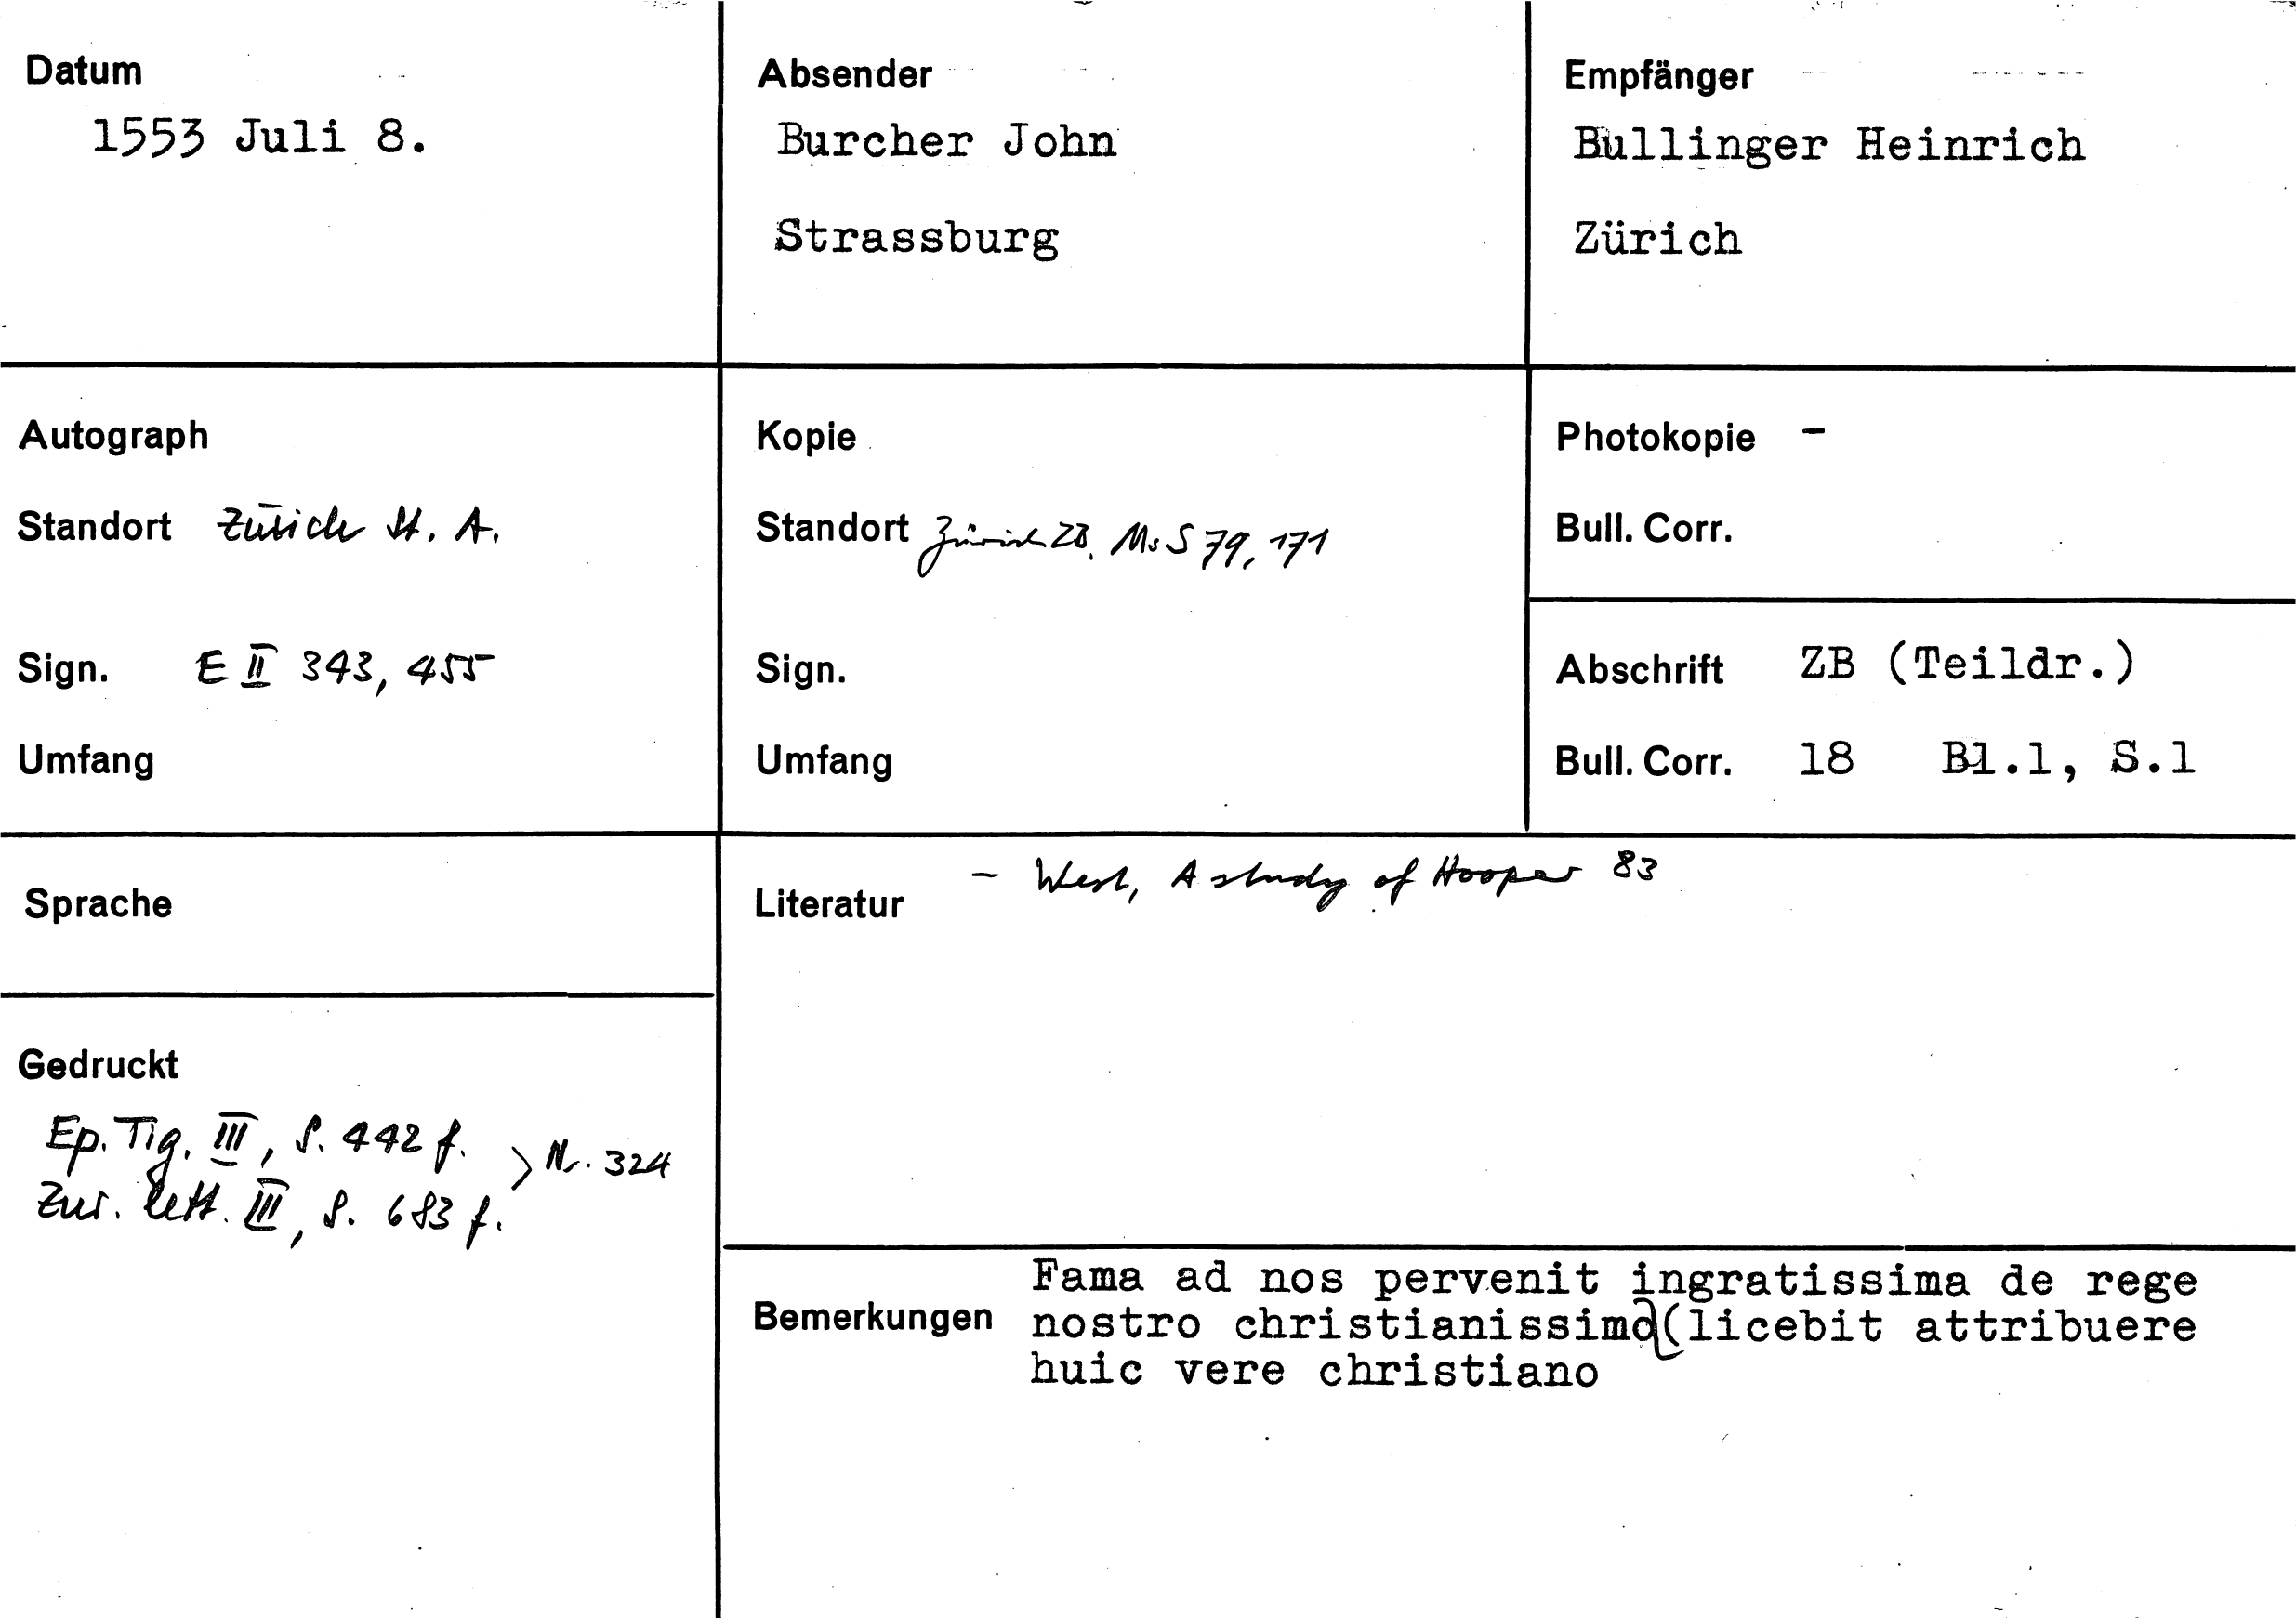 Datum
1553 Juli 8.
Absender
Burcher John
Strassburg
Empfänger
Bullinger Heinrich
Zürich
Autograph
Standort Zürich St. A.
Sign. E II 343, 455
Umfang
Kopie
Standort Zürich ZB, Ms S 79, 171
Sign.
Umfang
Photokopie -
Bull. Corr.
Abschrift ZB (Teildr.)
Bull. Corr. 18 Bl.1, S.1
Sprache
Literatur - West, A study of Hooper 83
Gedruckt
Ep. Tig. III, S. 442 f.
> Nr. 324
Zur. Lett. III, S. 683 f.
Bemerkungen
Fama ad nos pervenit ingratissima de rege
nostro christianissimo (licebit attribuere
huic vere christiano